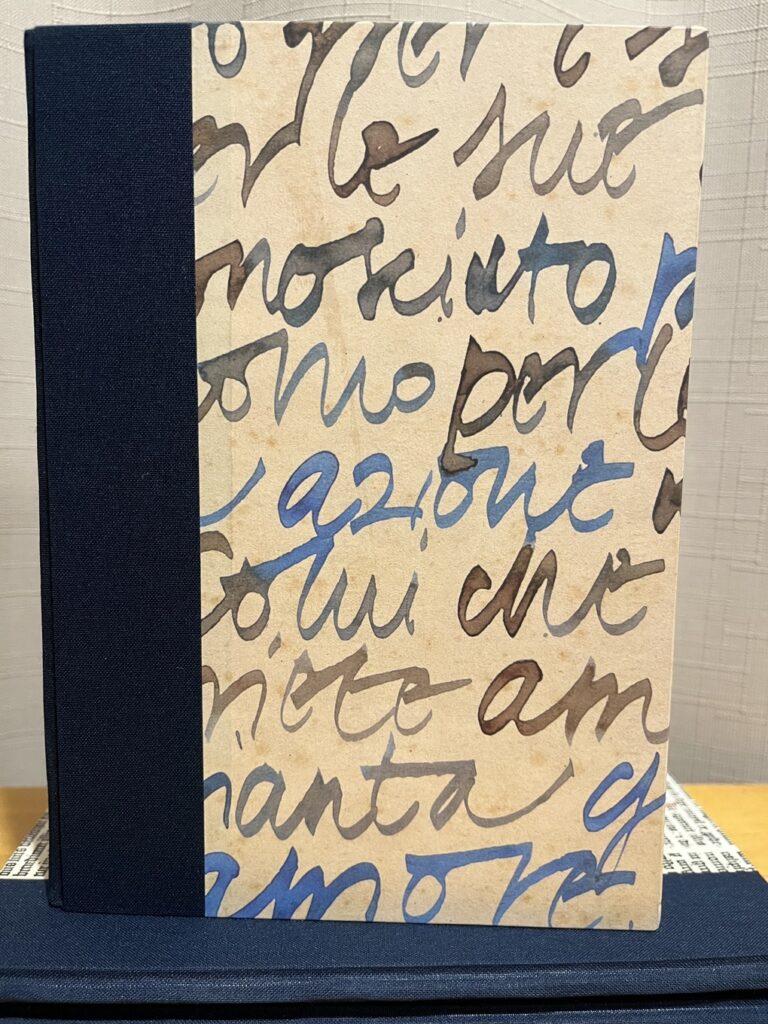 per
le sue
nosciuto
omo per l
azione
Colui che
riete am
anta g
amore